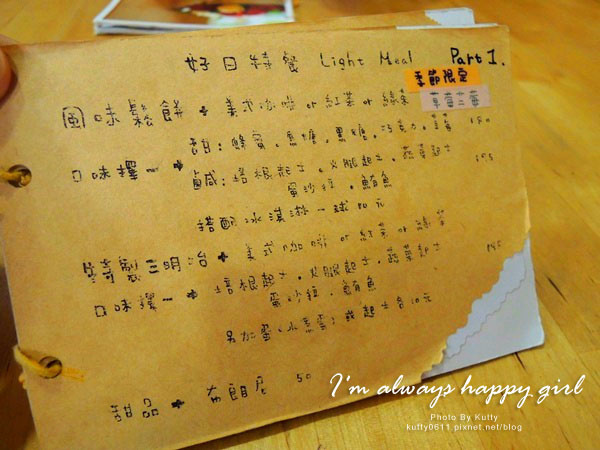 好日特餐 Light Meal Part 1.
季節限定
風味鬆餅 + 美式咖啡 or 紅茶 or 綠茶
口味擇一 + 甜: 蜂蜜。黑糖。巧克力。 190
鹹: 培根起士。火腿起士。蔬菜起士 195
蛋沙拉。鮪魚
搭配冰淇淋一球 元
特製三明治 + 美式咖啡 or 紅茶 or 綠茶
口味擇一 + 培根起士。火腿起士。蔬菜起士 195
蛋沙拉。鮪魚
另加蛋(水煮蛋)或起士各10元
甜品 + 布朗尼 50
I'm always happy girl
Photo By Kutty
kutty0611.pixnet.net/blog